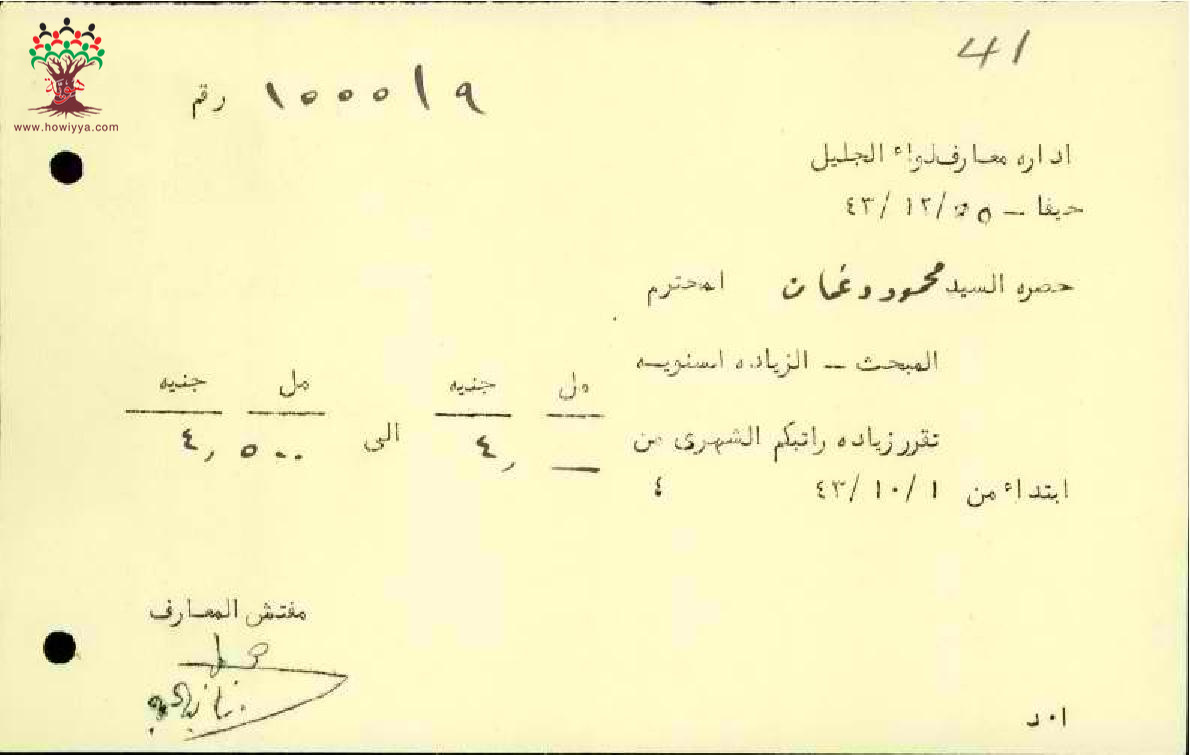 41
هوية
www.howiyya.com
رقم ١٥٥٥١٩
اداره معارف لواء الجليل
حيفا – ٥٥/١٢/٤٣
حضره السيد محمود دغمان المحترم
المبحث – الزياده السنويه
مل جنيه مل جنيه
تقرر زياده راتبكم الشهرى من — ٤, الى ٥٠٠ ٤,
ابتداء من ٤٣/١٠/١ ٤
مفتش المعارف
ا٠د